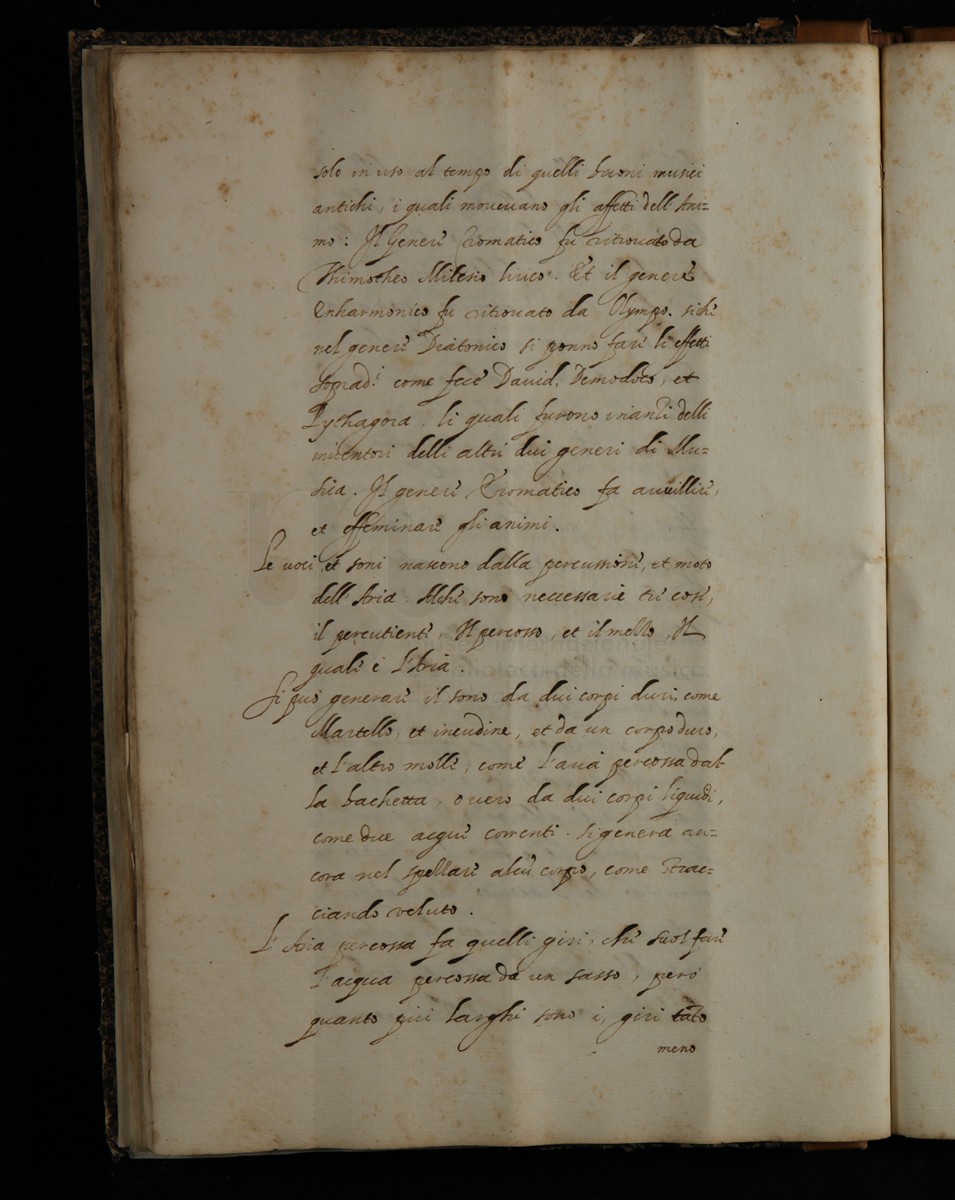 solo in uso al tempo di quelli buoni musici
antichi, i quali moueuano gli affetti dell Ani=
mo: Il Genere Cromatico fu ritrouato da
Thimotheo Milesio lirico. Et il genere
Enharmonico fu ritrouato da Olympo. siche
nel genere Diatonico si ponno fare li effetti
soprad.i come fece Dauid, Demodoco, et
Pythagora, li quali furono inanti delli
inuentori delli altri dui generi di Mu=
sica. Il genere Cromatico fa auuilire,
et effeminare gli animi.
Le uoci, et soni nascono dalla percussione, et moto
dell' Aria. Alche sono necessarie tre cose,
il percutiente, Il percosso, et il mezzo, Il
quale è l'Aria.
Si può generare il sono da dui corpi duri, come
Martello, et incudine, et da un corpo duro,
et l'altro molle, come l'aria percossa dal
la bachetta, ouero da dui corpi liquidi,
come due acque correnti. si genera an=
cora nel spellare alcũ corpo, come strac=
ciando ueluto.
L' Aria percossa fa quelli giri, che suol fare
l'acqua percossa da un sasso, però
quanto più larghi sono i, giri tãto
meno